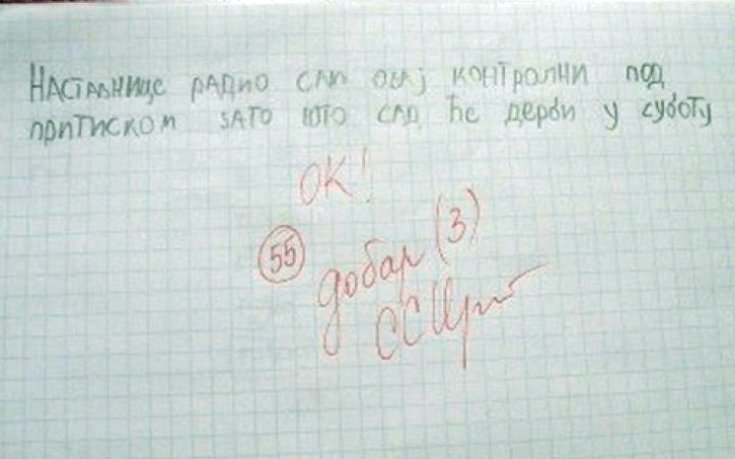 Наставнице радио сам овај контролни под
притиском зато што сад ће дерби у суботу
ОК!
55
добар (3)